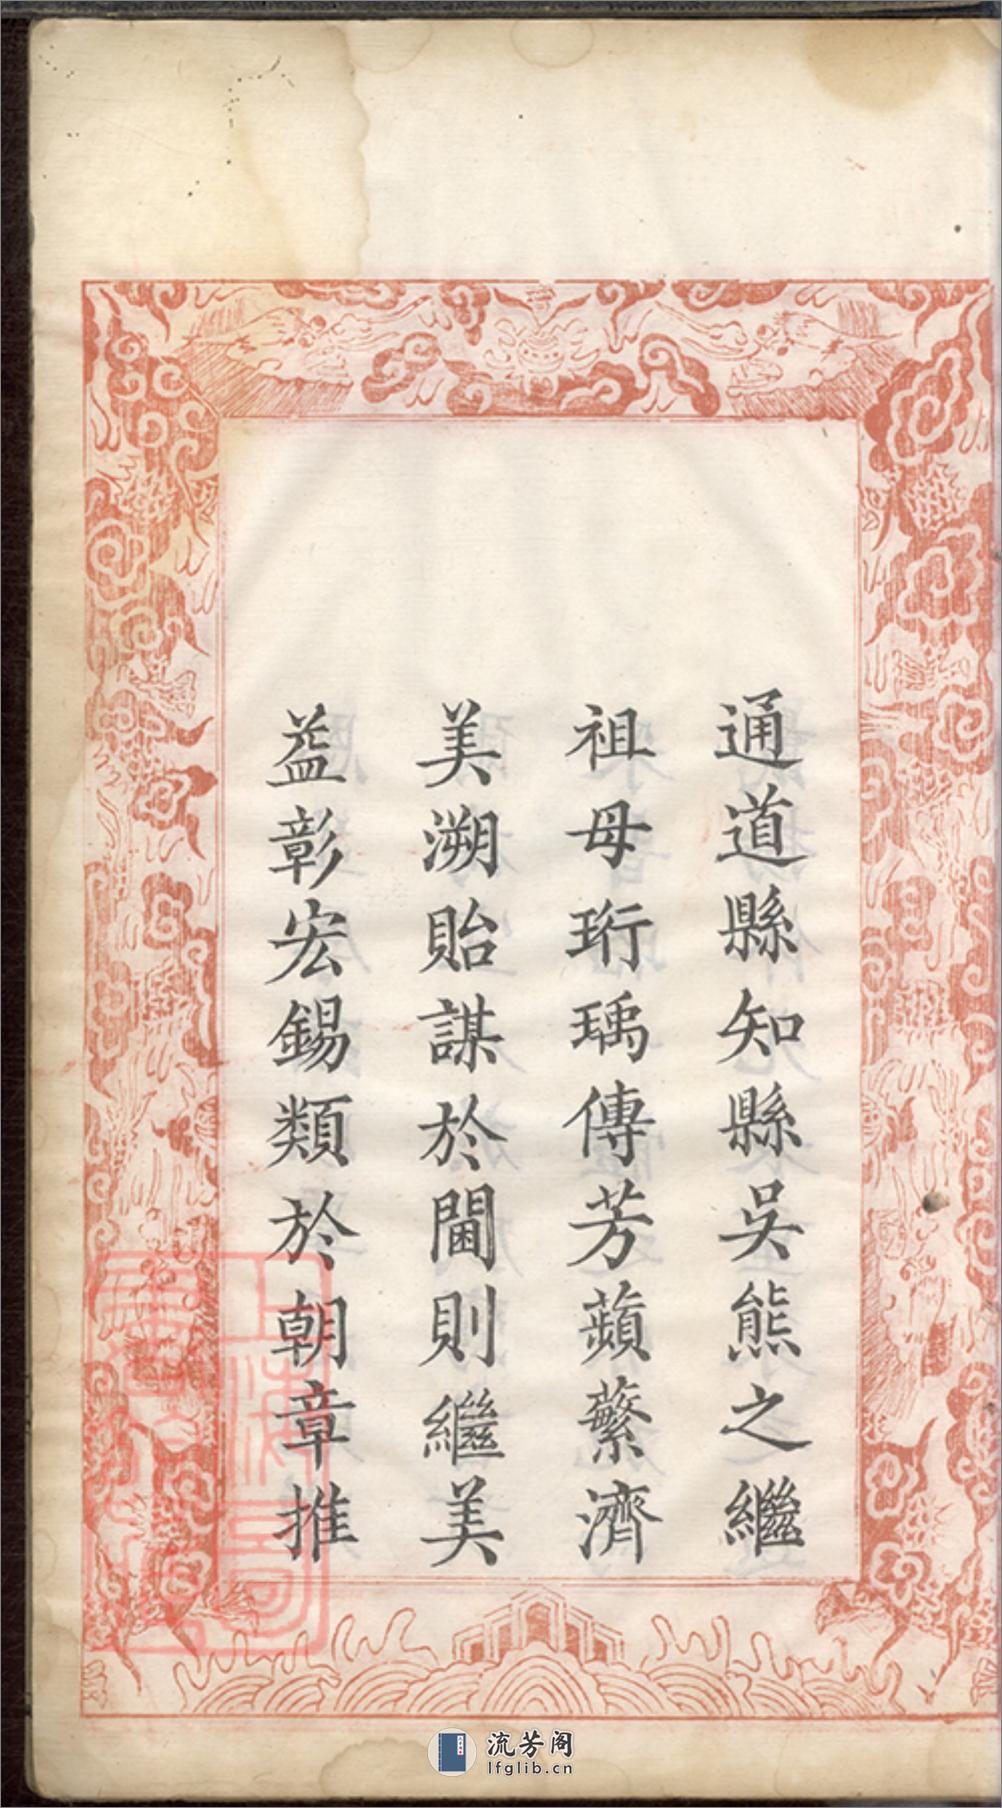 通道縣知縣吳熊之繼
祖母珩瑀傳芳蘋蘩濟
美溯貽謀於閫則繼美
益彰宏錫類於朝章推
流芳阁
lfglib.cn